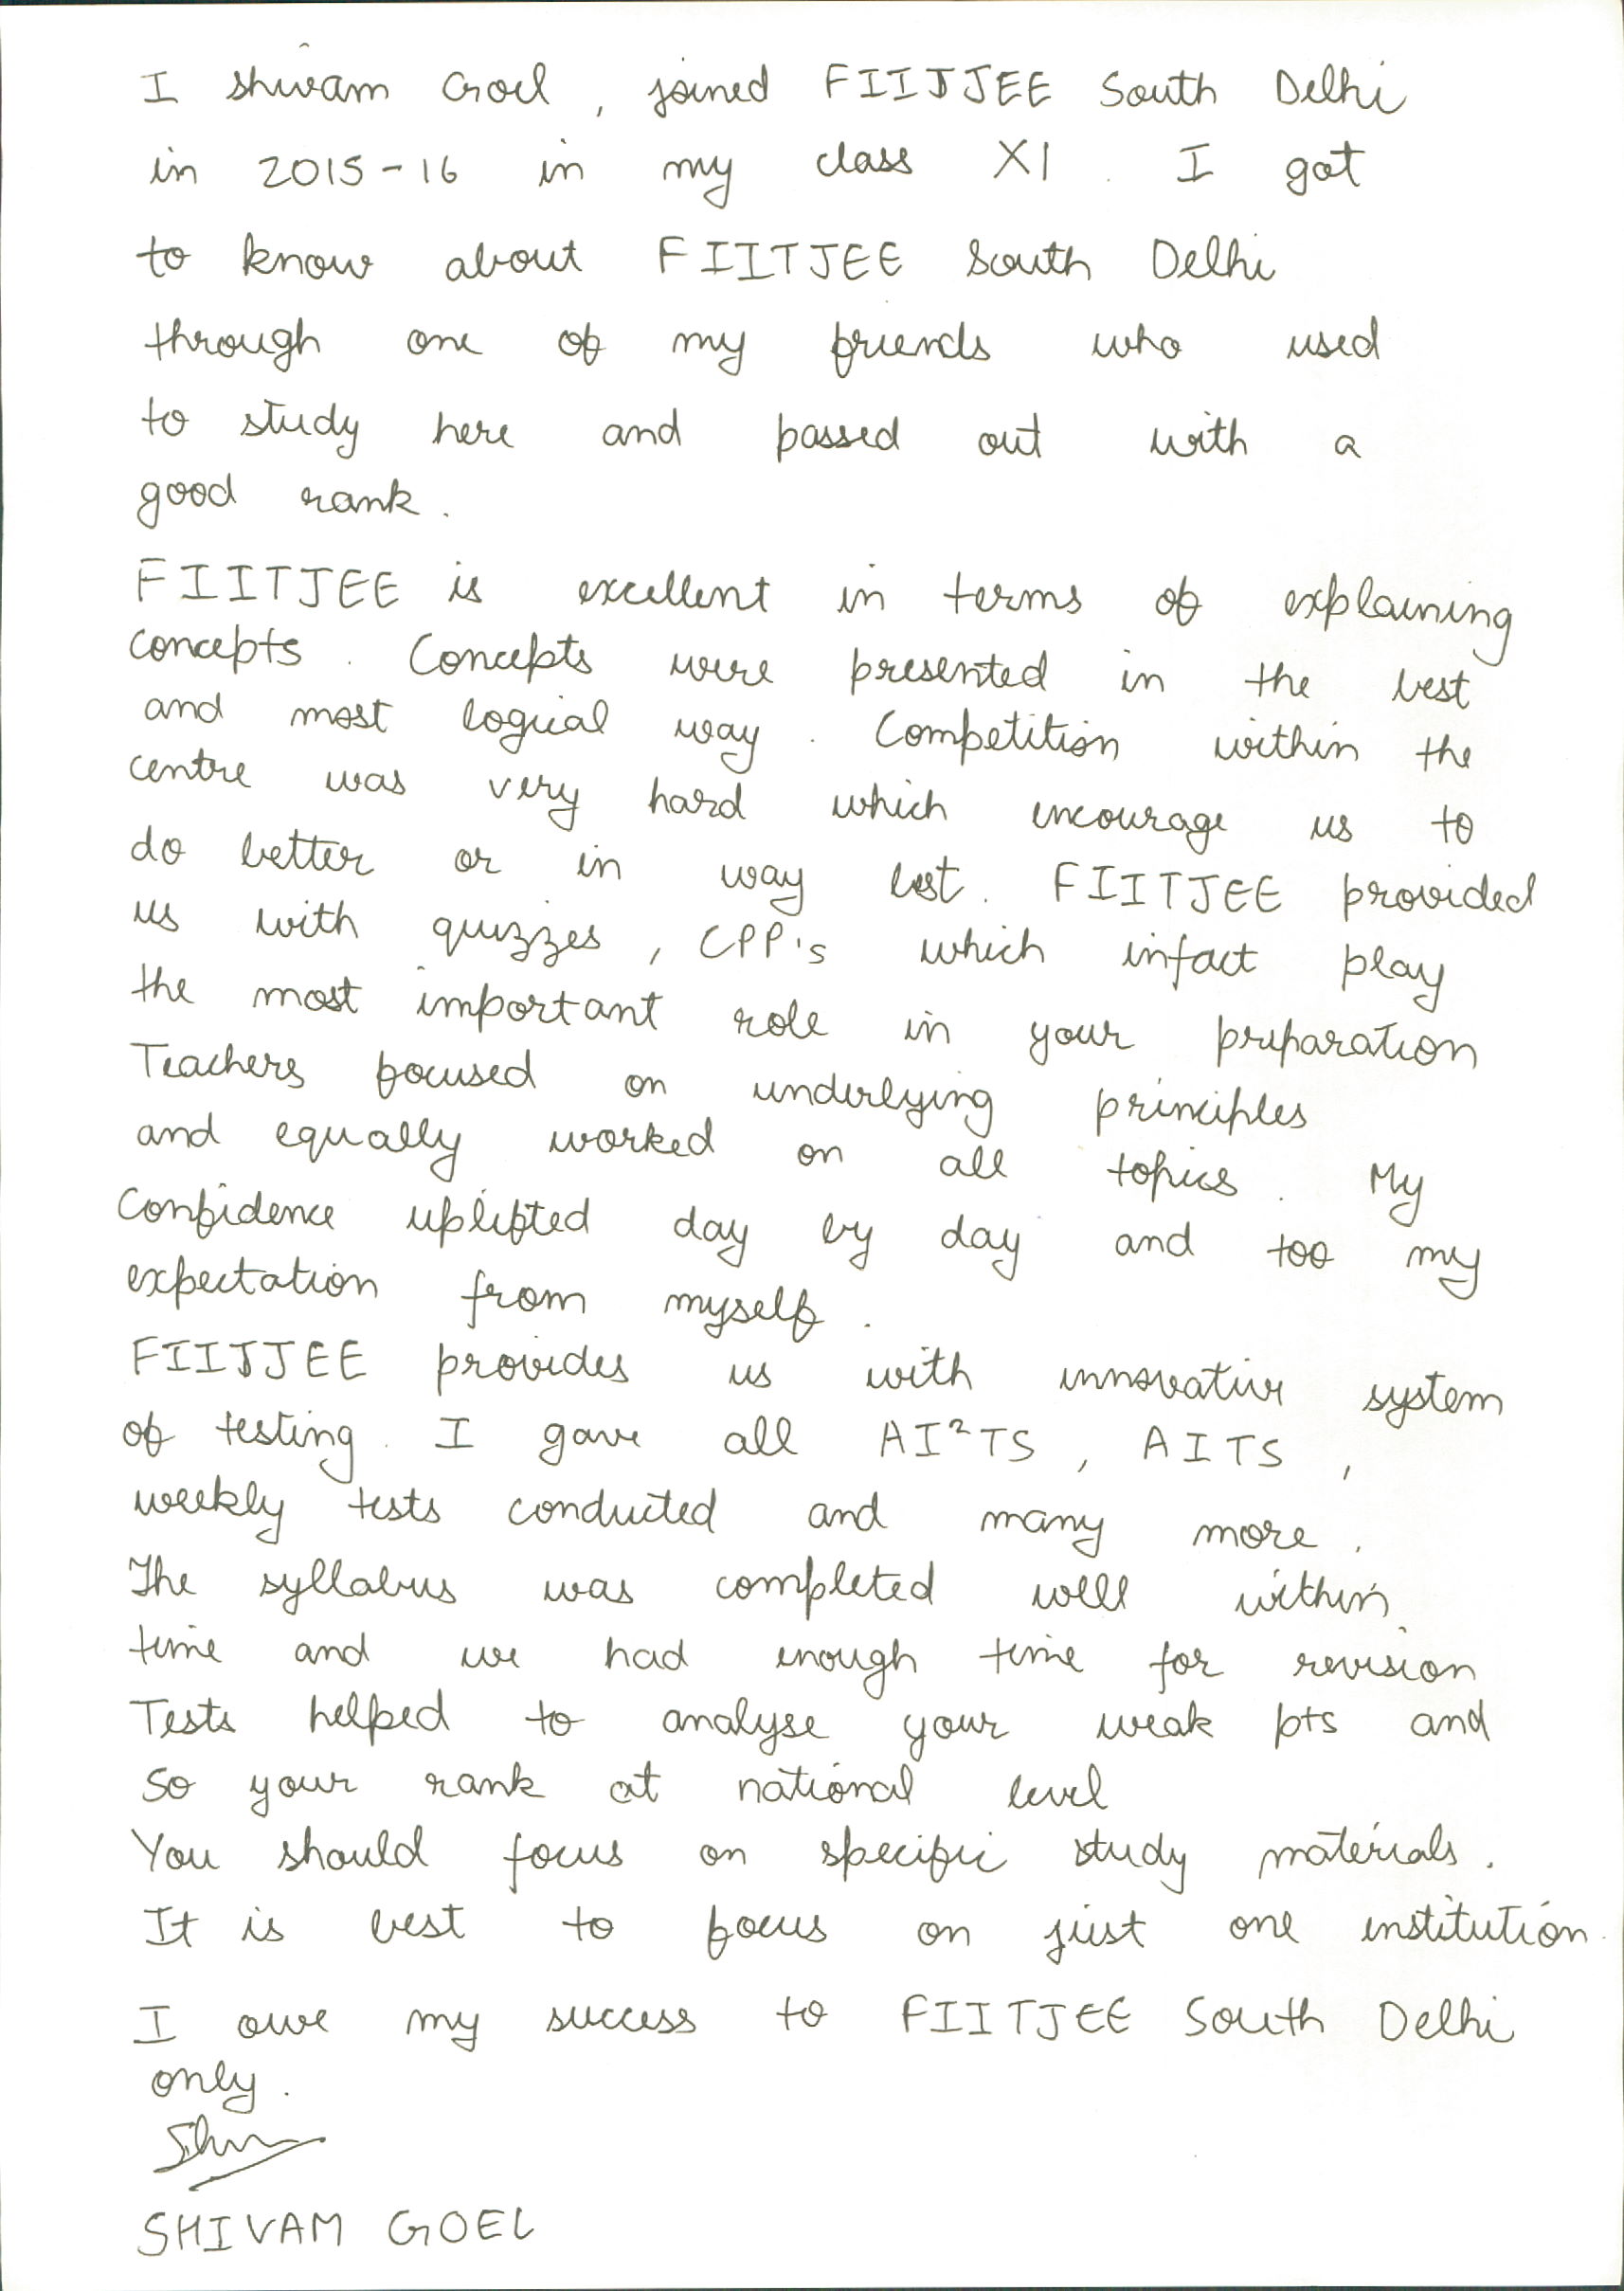 I Shivam Goel , joined FIITJEE South Delhi
in 2015-16 in my class XI . I got
to know about FIITJEE South Delhi
through one of my friends who used
to study here and passed out with a
good rank .
FIITJEE is excellent in terms of explaining
concepts . Concepts were presented in the best
and most logical way . Competition within the
centre was very hard which encourage us to
do better or in way best . FIITJEE provided
us with quizzes , CPP's which infact play
the most important role in your preparation
Teachers focused on underlying principles
and equally worked on all topics . My
Confidence uplifted day by day and too my
expectation from myself .
FIITJEE provides us with innovative system
of testing . I gave all AI²TS , AITS ,
weekly tests conducted and many more .
The syllabus was completed well within
time and we had enough time for revision
Tests helped to analyse your weak pts and
so your rank at national level
You should focus on specific study materials .
It is best to focus on just one institution .
I owe my success to FIITJEE South Delhi
only .
Shiv
SHIVAM GOEL